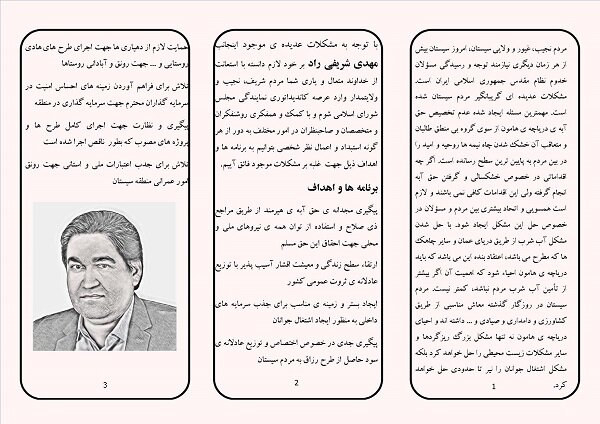 مردم نجیب، غیور و ولایی سیستان، امروز سیستان بیش
از هر زمان دیگری نیازمند توجه و رسیدگی مسؤلان
خدوم نظام مقدس جمهوری اسلامی ایران است.
مشکلات عدیده ای گریبانگیر مردم سیستان شده
است. مهمترین مسئله ایجاد شده عدم تخصیص حق
آبه ی دریاچه ی هامون از سوی گروه بی منطق طالبان
و متعاقب آن خشک شدن چاه نیمه ها روحیه و امید را
در بین مردم به پایین ترین سطح رسانده است. اگر چه
اقداماتی در خصوص خشکسالی و گرفتن حق آبه
انجام گرفته ولی این اقدامات کافی نمی باشند و لازم
است همسویی و اتحاد بیشتری بین مردم و مسؤلان در
خصوص حل این مشکل ایجاد شود. با حل شدن
مشکل آب شرب از طریق دریای عمان و سایر چاهک
ها که مطرح می باشد، اعتقاد بنده این می باشد که باید
دریاچه ی هامون احیاء شود که اهمیت آن اگر بیشتر
از تأمین آب شرب مردم نباشد، کمتر نیست. مردم
سیستان در روزگار گذشته معاش مناسبی از طریق
کشاورزی و دامداری و صیادی و ... داشته اند و احیای
دریاچه ی هامون نه تنها مشکل بزرگ ریزگردها و
سایر مشکلات زیست محیطی را حل خواهد کرد بلکه
مشکل اشتغال جوانان را نیز تا حدودی حل خواهد
کرد.
1
با توجه به مشکلات عدیده ی موجود اینجانب
مهدی شریفی راد بر خود لازم دانسته با استعانت
از خداوند متعال و یاری شما مردم شریف، نجیب و
ولایتمدار وارد عرصه کاندیداتوری نمایندگی مجلس
شورای اسلامی شوم و با کمک و همفکری روشنفکران
و متخصصان و صاحبنظران در امور مختلف به دور از هر
گونه استبداد و اعمال نظر شخصی بتوانیم به برنامه ها و
اهداف ذیل جهت غلبه بر مشکلات موجود فائق آییم.
برنامه ها و اهداف
پیگیری مجدانه ی حق آبه ی هیرمند از طریق مراجع
ذی صلاح و استفاده از توان همه ی نیروهای ملی و
محلی جهت احقاق این حق مسلم
ارتقاء سطح زندگی و معیشت اقشار آسیب پذیر با توزیع
عادلانه ی ثروت عمومی کشور
ایجاد بستر و زمینه ی مناسب برای جذب سرمایه های
داخلی به منظور ایجاد اشتغال جوانان
پیگیری جدی در خصوص اختصاص و توزیع عادلانه ی
سود حاصل از طرح رزاق به مردم سیستان
2
حمایت لازم از دهیاری ها جهت اجرای طرح های هادی
روستایی و ... جهت رونق و آبادانی روستاها
تلاش برای فراهم آوردن زمینه های احساس امنیت در
سرمایه گذاران محترم جهت سرمایه گذاری در منطقه
پیگیری و نظارت جهت اجرای کامل طرح ها و
پروژه های مصوب که بطور ناقص اجرا شده است
تلاش برای جذب اعتبارات ملی و استانی جهت رونق
امور عمرانی منطقه سیستان
3